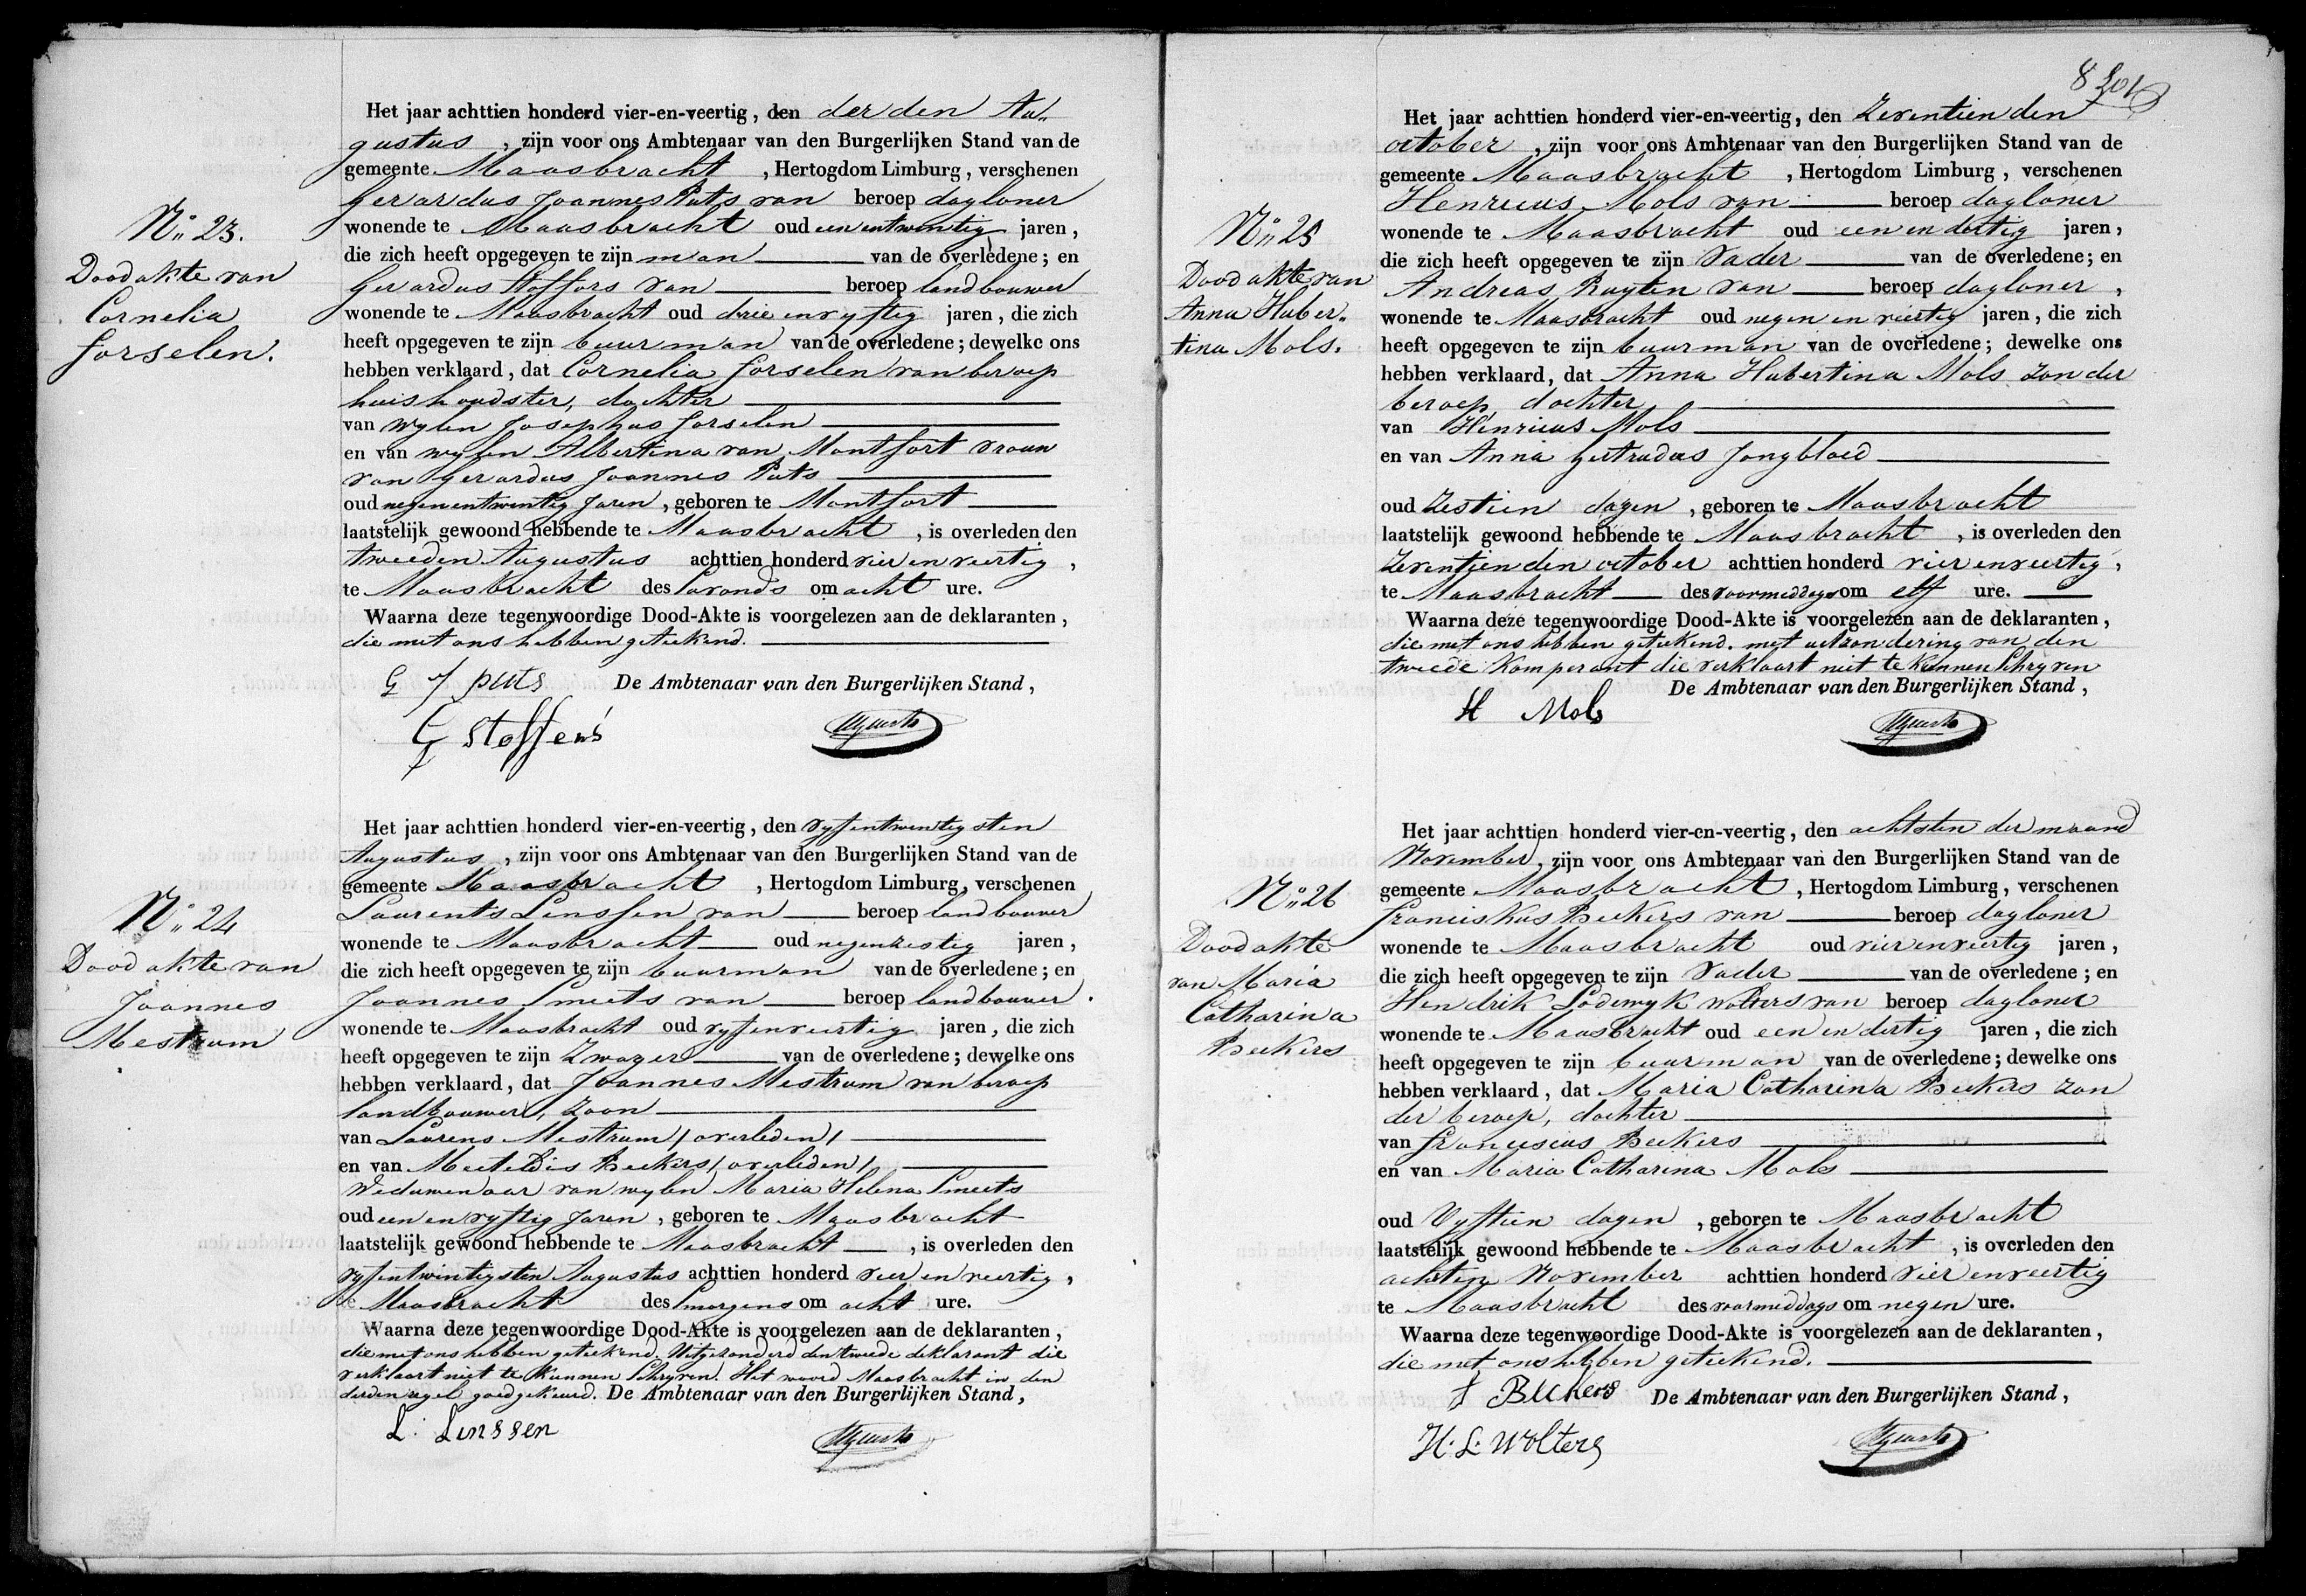 Het jaar achttien honderd vier-en-veertig, den derden Au„
gustus , zijn voor ons Ambtenaar van den Burgerlijken Stand van de
gemeente Maasbracht , Hertogdom Limburg, verschenen
Gerardus Joannes Puts van beroep dagloner
wonende te Maasbracht oud een entwentig jaren,
die zich heeft opgegeven te zijn man van de overledene; en
Gerardus Stoffors van beroep landbouwer
wonende te Maasbracht oud drie envyftig jaren, die zich
heeft opgegeven te zijn buurman van de overledene; dewelke ons
hebben verklaard, dat Cornelia Forselen van beroep
huishoudster, dochter
van wylen Josephus Forselen
en van wylen Albertina van Montfort vrouw
van Gerardus Joannes Puts
oud negenentwentig Jaren, geboren te Montfort
laatstelijk gewoond hebbende te Maasbracht , is overleden den
tweeden Augustus achttien honderd vier en veertig,
te Maasbracht des Savonds om acht ure.
Waarna deze tegenwoordige Dood-Akte is voorgelezen aan de deklaranten,
die met ons hebben geteekend.
G J puts De Ambtenaar van den Burgerlijken Stand,
G Stoffens
N.° 23.
Dood akte van
Cornelia
Forselen.
Het jaar achttien honderd vier-en-veertig, den vyfentwentigsten
Augustus , zijn voor ons Ambtenaar van den Burgerlijken Stand van de
gemeente Maasbracht , Hertogdom Limburg, verschenen
Laurents Linssen van beroep landbouwer
wonende te Maasbracht oud negenzestig jaren,
die zich heeft opgegeven te zijn buurman van de overledene; en
Joannes Smeets van beroep landbouwer.
wonende te Maasbracht oud vyfenveertig jaren, die zich
heeft opgegeven te zijn Zwager van de overledene; dewelke ons
hebben verklaard, dat Joannes Mestrum van beroep
landbouwer, zoon
van Laurens Mestrum /overleden/
en van Meeteldis Beekers /overleden/
Weduwenaar van wylen Maria Helena Smeets
oud een en vyftig Jaren , geboren te Maasbracht
laatstelijk gewoond hebbende te Maasbracht , is overleden den
vyfentwintigsten Augustus achttien honderd vier en veertig,
te Maasbracht des Smorgens om acht ure.
Waarna deze tegenwoordige Dood-Akte is voorgelezen aan de deklaranten,
die met ons hebben geteekend. Uitgezonderd den tweede deklarant die
verklaart niet te kunnen Schryven. Het woord Maasbracht in den
derden regel goedgekeurd. De Ambtenaar van den Burgerlijken Stand,
L. Linssen
N.° 24
Dood akte van
Joannes
Mestrum
8
Het jaar achttien honderd vier-en-veertig, den Zeventienden
october , zijn voor ons Ambtenaar van den Burgerlijken Stand van de
gemeente Maasbracht , Hertogdom Limburg, verschenen
Henricus Mols van beroep dagloner
wonende te Maasbracht oud een en dertig jaren,
die zich heeft opgegeven te zijn Vader van de overledene; en
Andreas Ruyten van beroep dagloner,
wonende te Maasbracht oud negen en veertig jaren, die zich
heeft opgegeven te zijn buurman van de overledene; dewelke ons
hebben verklaard, dat Anna Hubertina Mols zonder
beroep, dochter
van Henricus Mols
en van Anna Gertrudus Jongbloed
oud Zestien dagen , geboren te Maasbracht
laatstelijk gewoond hebbende te Maasbracht , is overleden den
Zeventienden october achttien honderd vier enveertig,
te Maasbracht des voormiddags om elf ure.
Waarna deze tegenwoordige Dood-Akte is voorgelezen aan de deklaranten,
die met ons hebben geteekend. met uitzondering van den
tweede Komperant die verklaart niet te kunnen Schryven
De Ambtenaar van den Burgerlijken Stand,
H Mols
N.° 25
Dood akte van
Anna Huber„
tina Mols.
Het jaar achttien honderd vier-en-veertig, den achtsten der maand
November, zijn voor ons Ambtenaar van den Burgerlijken Stand van de
gemeente Maasbracht , Hertogdom Limburg, verschenen
Franciskus Beekers van beroep dagloner
wonende te Maasbracht oud vier en veertig jaren,
die zich heeft opgegeven te zijn Vader van de overledene; en
Hendrik Lodewyk Wolters van beroep dagloner
wonende te Maasbracht oud een en dertig jaren, die zich
heeft opgegeven te zijn buurman van de overledene; dewelke ons
hebben verklaard, dat Maria Catharina Beekers zon
der beroep, dochter
van Franciscus Beekers
en van Maria Catharina Mols
oud Vyftien dagen , geboren te Maasbracht
laatstelijk gewoond hebbende te Maasbracht , is overleden den
achsten November achttien honderd vier enveertig
te Maasbracht des voormiddags om negen ure.
Waarna deze tegenwoordige Dood-Akte is voorgelezen aan de deklaranten,
die met ons hebben geteekend.
f Beckers De Ambtenaar van den Burgerlijken Stand,
H. L. Wolters
N.° 26
Dood akte
van Maria
Catharina
Beekers